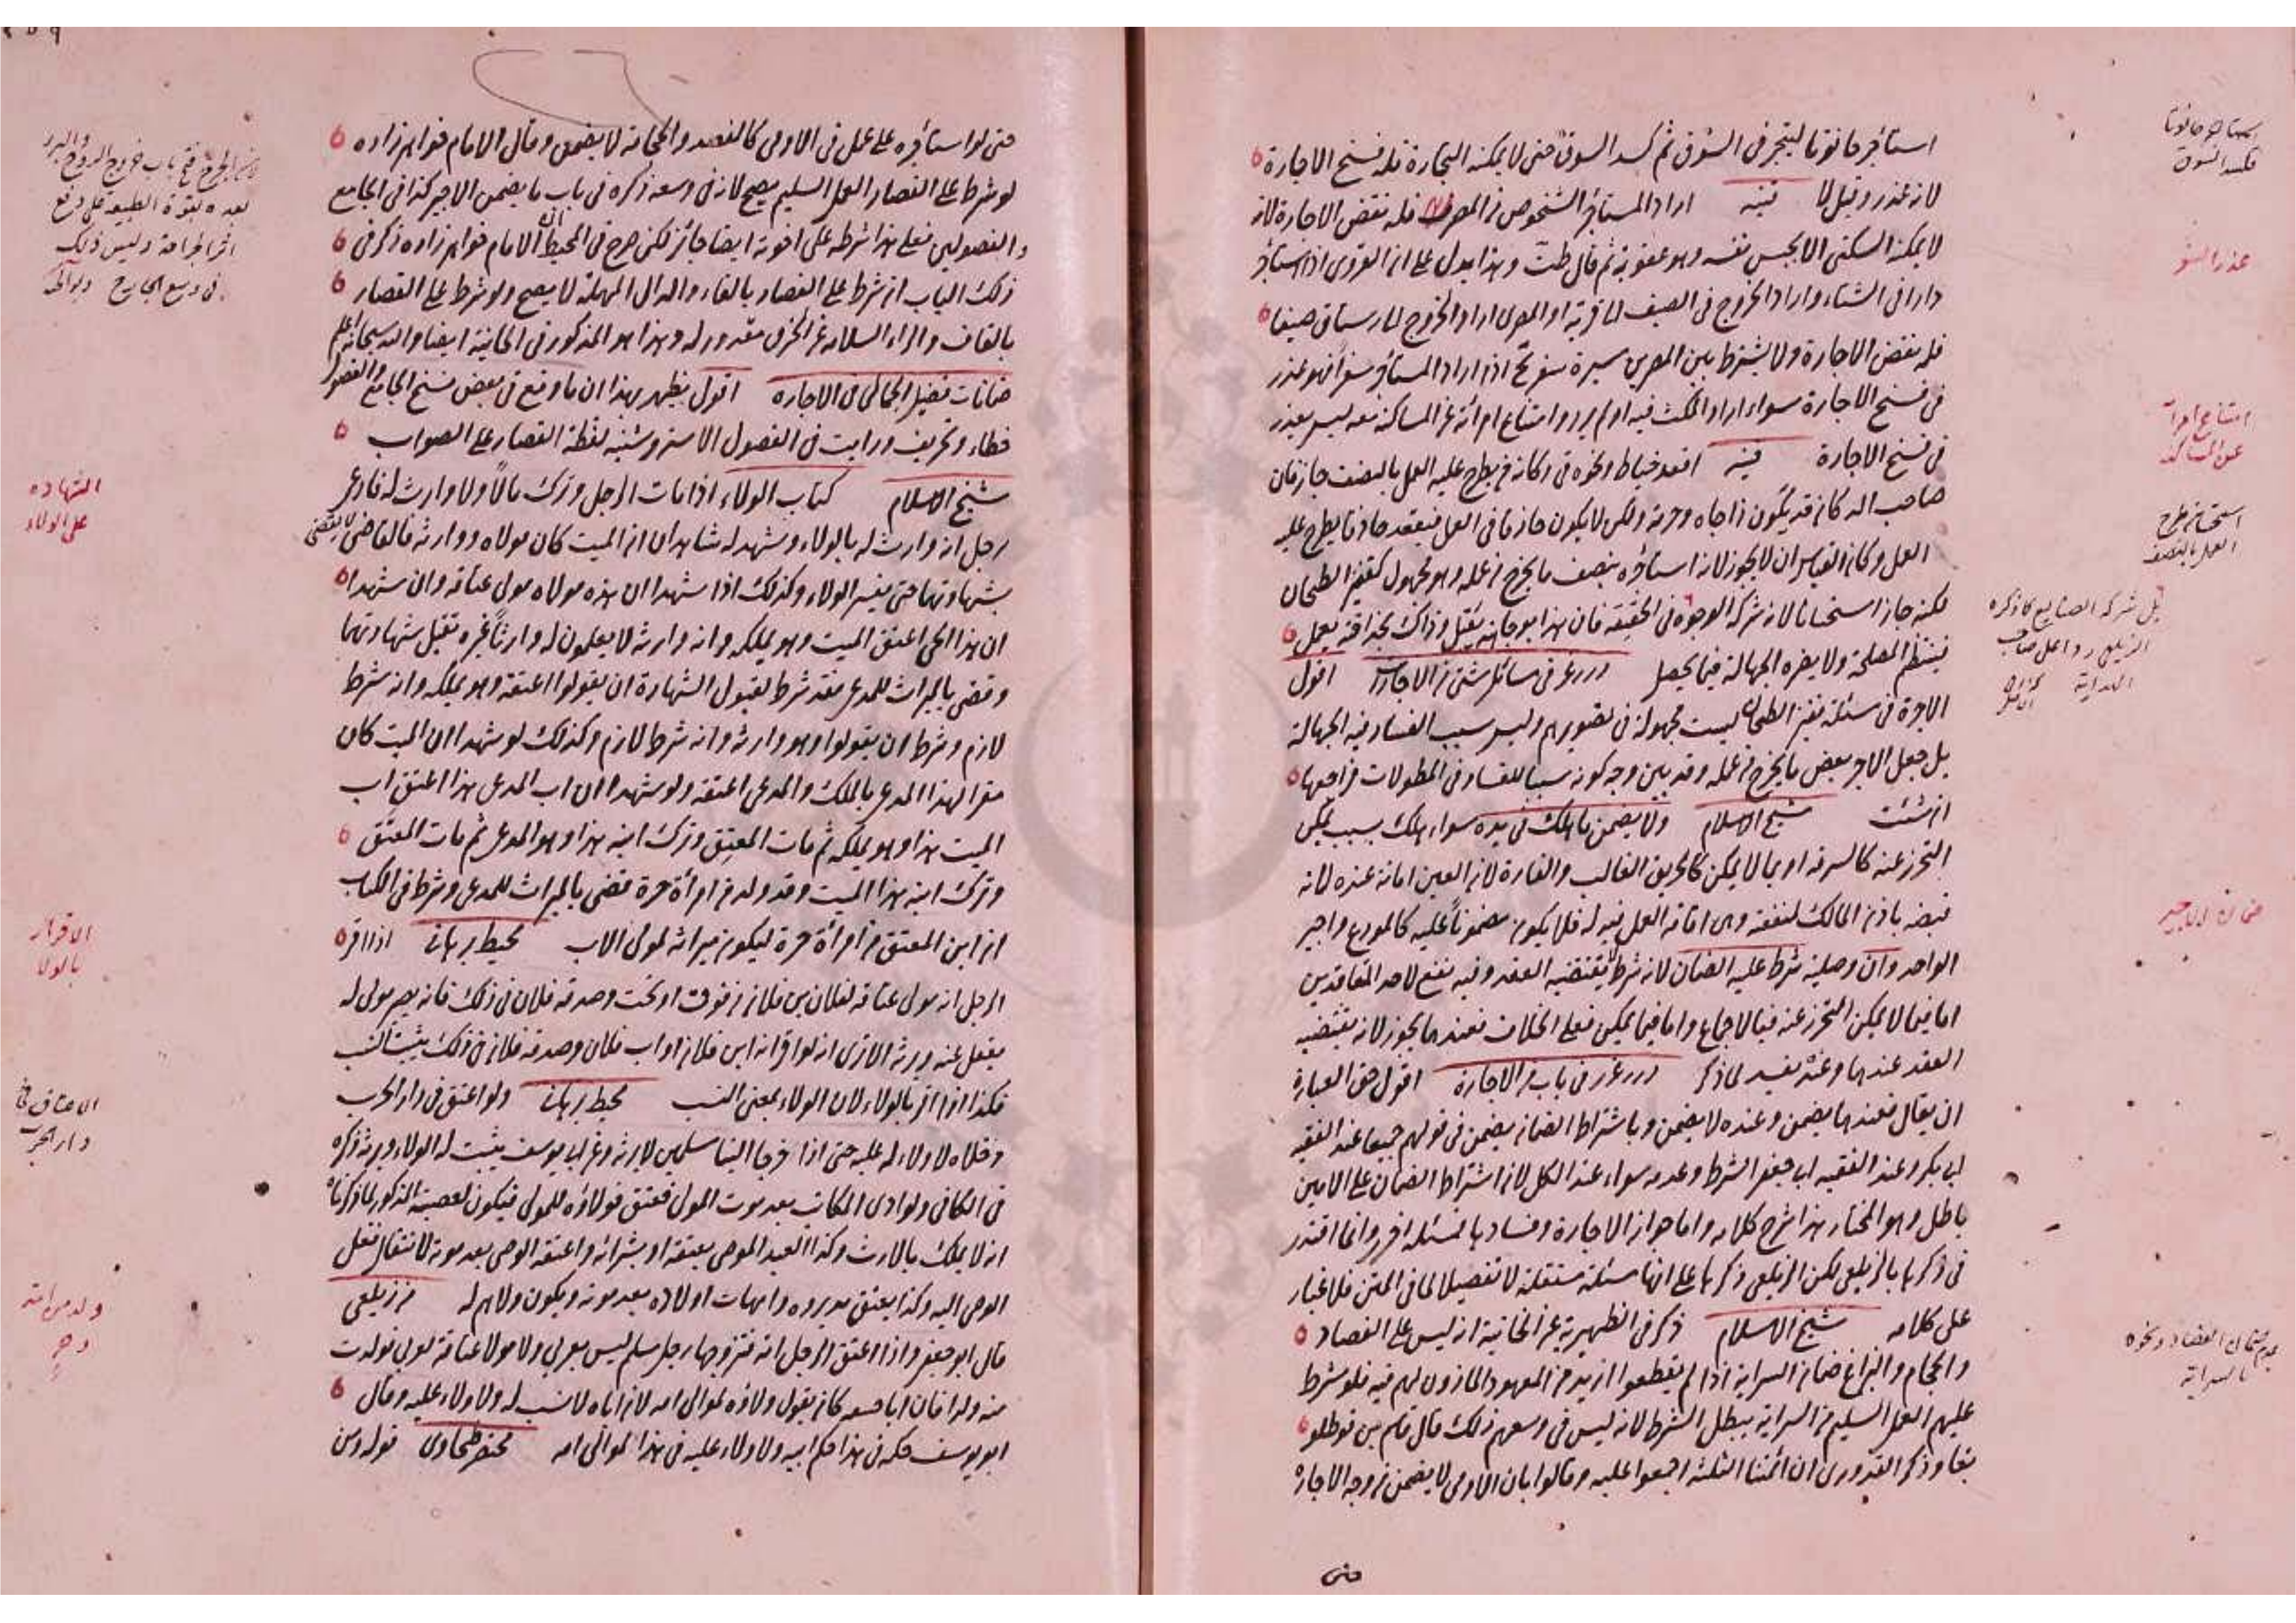 استأجر حانوتا ليتجر فى السوق ثم كسد السوق حتى لا يمكنه التجارة فله فسخ الاجارة
لانه عذر وقيل لا قنيه اراد المستأجر الشخوص من المصر فله نقض الاجارة لانه
لا يمكنه السكنى الا بحبس نفسه وهو عقوبة ثم قال ظت وهذا يدل على ان القروى اذا استأجر
دارا فى الشتاء واراد الخروج فى الصيف الى قريته او المصرى اراد الخروج الى رستاق صيفا
فله نقض الاجارة ولا يشترط بين المصرين مسيرة سفر اذا اراد المستأجر سفرا فهو عذر
فى فسخ الاجارة سواء اراد المكث فيه او لم يرد وامتناع امرأته عن المساكنة معه ليس بعذر
فى فسخ الاجارة قنيه اقعد خياط ونحوه فى دكانه من يطرح عليه العمل بالنصف جاز فان
صاحب الدكان قد يكون ذا جاه وحرمة ولكن لا يكون حاذقا فى العمل فيقعد حاذقا يطرح عليه
العمل وكان القياس ان لا يجوز لانه استأجره بنصف ما يخرج من عمله وهو مجهول كقفيز الطحان
لكنه جاز استحسانا لانه شركة الوجوه فى الحقيقة فان هذا بوجاهته يقبل وذاك بحذاقته يعمل
فينتظم المصلحة ولا يضره الجهالة فيما يحصل درر غرر فى مسائل شتى من الاجارة اقول
الاجرة فى مسئلة قفيز الطحان ليست مجهولة فى تصويرهم وليس سبب الفساد فيه الجهالة
بل جعل الاجر بعض ما يخرج من عمله وقد بين وجه كونه سببا للفساد فى المطولات فراجعها
ان شئت شيخ الاسلام ولا يضمن ما هلك فى يده سواء هلك بسبب يمكن
التحرز عنه كالسرقة او بما لا يمكن كالحريق الغالب والغارة لان العين امانة عنده لانه
قبضه باذن المالك لمنفعته وهى اقامة العمل فيه له فلا يكون مضمونا عليه كالمودع واجير
الواحد وان وصلية شرط عليه الضمان لانه شرط لا يقتضيه العقد وفيه نفع لاحد المتعاقدين
اما فيما لا يمكن التحرز عنه فبالاجماع واما فيما يمكن فعلى الخلاف فعندهما يجوز لانه يقتضيه
العقد عندهما وعنده يفسد لما ذكر درر غرر فى باب من الاجارة اقول حق العبارة
ان يقال فعندهما يضمن وعنده لا يضمن وباشتراط الضمان يضمن فى قولهم جميعا عند الفقيه
ابى بكر وعند الفقيه ابى جعفر الشرط وعدمه سواء عند الكل لان اشتراط الضمان على الامين
باطل وهو المختار هذا شرح كلامه واما جواز الاجارة وفسادها فمسئلة اخرى وانما اقتدر
فى ذكرها بالزيلعى لكن الزيلعى ذكرها على انها مسئلة مستقلة لا تفصيلا لما فى المتن فلا غبار
على كلامه شيخ الاسلام ذكر فى الظهيرية عن الخانية انه ليس على الفصاد
والحجام والبزاغ ضمان السراية اذا لم يقطعوا ازيد من المعهود المأذون لهم فيه فلو شرط
عليهم العمل السليم من السراية يبطل الشرط لانه ليس فى وسعهم ذلك قال قاسم بن قوطلو
بغا وذكر القدورى ان ائمتنا الثلثة اجمعوا عليه وقالوا بان الادمى لا يضمن من وجه الاجارة
حتى
عذر السفر
امتناع امرأته
عن المساكنة
استحسان طرح
العمل بالنصف
بل شركة الصنايع كما ذكره
الزيلعى ردا على صاحب
الهداية
ضمان الاجير
عدم ضمان الفصاد ونحوه
بالسراية
حتى لو استأجره على عمل فى الادمى كالفصد والحجامة لا يضمن وقال الامام خواهر زاده
لو شرط على الفصاد العمل السليم يصح لانه فى وسعه ذكره فى باب ما يضمن الاجير كذا فى الجامع
والفصولين فعلى هذا شرطه على اخوته ايضا جائز لكن صرح فى المحيط ان الامام خواهر زاده ذكر فى
ذلك الباب ان شرط على الفصاد بالفاء والدال المهملة لا يصح ولو شرط على القصار
بالقاف والراء السلامة عن الخرق مقدور له وهذا هو المذكور فى الخانية ايضا والله سبحانه اعلم
ضمانات فضيل الجمالى فى الاجارة اقول يظهر بهذا ان ما وقع فى بعض نسخ الجامع والفصول
خطاء وتحريف ورايت فى الفصول الاستروشنيه لفظة القصار على الصواب
شيخ الاسلام كتاب الولاء اذا مات الرجل وترك مالا ولا وارث له فادعى
رجل انه وارث له بالولاء وشهد له شاهدان ان الميت كان مولاه ووارثه فالقاضى لا يقضى
بشهادتهما حتى يفسر الولاء وكذلك اذا شهدا ان هذه مولاه مولى عتاقه وان شهدا
ان هذا الحى اعتق الميت وهو يملكه وانه وارثه لا يعلمون له وارثا غيره تقبل شهادتهما
وقضى بالميراث للمدعى فقد شرط لقبول الشهادة ان يقولوا اعتقه وهو يملكه وانه شرط
لازم وشرط ان يقولوا وهو وارثه وانه شرط لازم وكذلك لو شهدا ان الميت كان
مقرا لهذا المدعى بالملك والمدعى اعتقه ولو شهدا ان اب المدعى هذا اعتق اب
الميت هذا وهو يملكه ثم مات المعتق وترك ابنه هذا وهو المدعى ثم مات المعتق
وترك ابنه هذا الميت وقد ولد من امرأة حرة قضى بالميراث للمدعى وشرط فى الكتاب
ان ابن المعتق من امرأة حرة ليكون ميراثه لمولى الاب محيط برهانى اذا اقر
الرجل انه مولى عتاقه لفلان بن فلان من فوق او تحت وصدقه فلان فى ذلك فانه يصير مولى له
يعقل عنه ويرثه الا ترى انه لو اقر انه ابن فلان او اب فلان وصدقه فلان فى ذلك يثبت النسب
فكذا اذا اقر بالولاء لان الولاء بمعنى النسب محيط برهانى ولو اعتق فى دار الحرب
وخلاه لا ولاء له عليه حتى اذا خرجا الينا مسلمين لا يرثه وعن ابى يوسف يثبت له الولاء ويرثه ذكره
فى الكافى ولو ادى المكاتب بعد موت المولى فعتق فولاؤه للمولى فيكون لعصبته الذكور لما ذكرنا
انه لا يملك بالارث وكذا العبد الموصى بعتقه او بشرائه واعتقه الوصى بعد موته لانتقال فعل
الوصى اليه وكذا يعتق مدبروه وامهات اولاده بعد موته ويكون ولاهم له من زيلعى
قال ابو جعفر واذا اعتق الرجل امته فتزوجها رجل مسلم ليس بعربى ولا مولا عتاقة لعربى فولدت
منه ولدا فان ابا حنيفه كان يقول ولاؤه لموالى امه لان اباه لا نسب له ولا ولاء عليه وقال
ابو يوسف حكمه فى هذا حكم ابيه ولا ولاء عليه فى هذا لموالى امه مختصر طحاوى قوله ومن
الشهاده
على الولاء
الاقرار
بالولاء
الاعتاق فى
دار الحرب